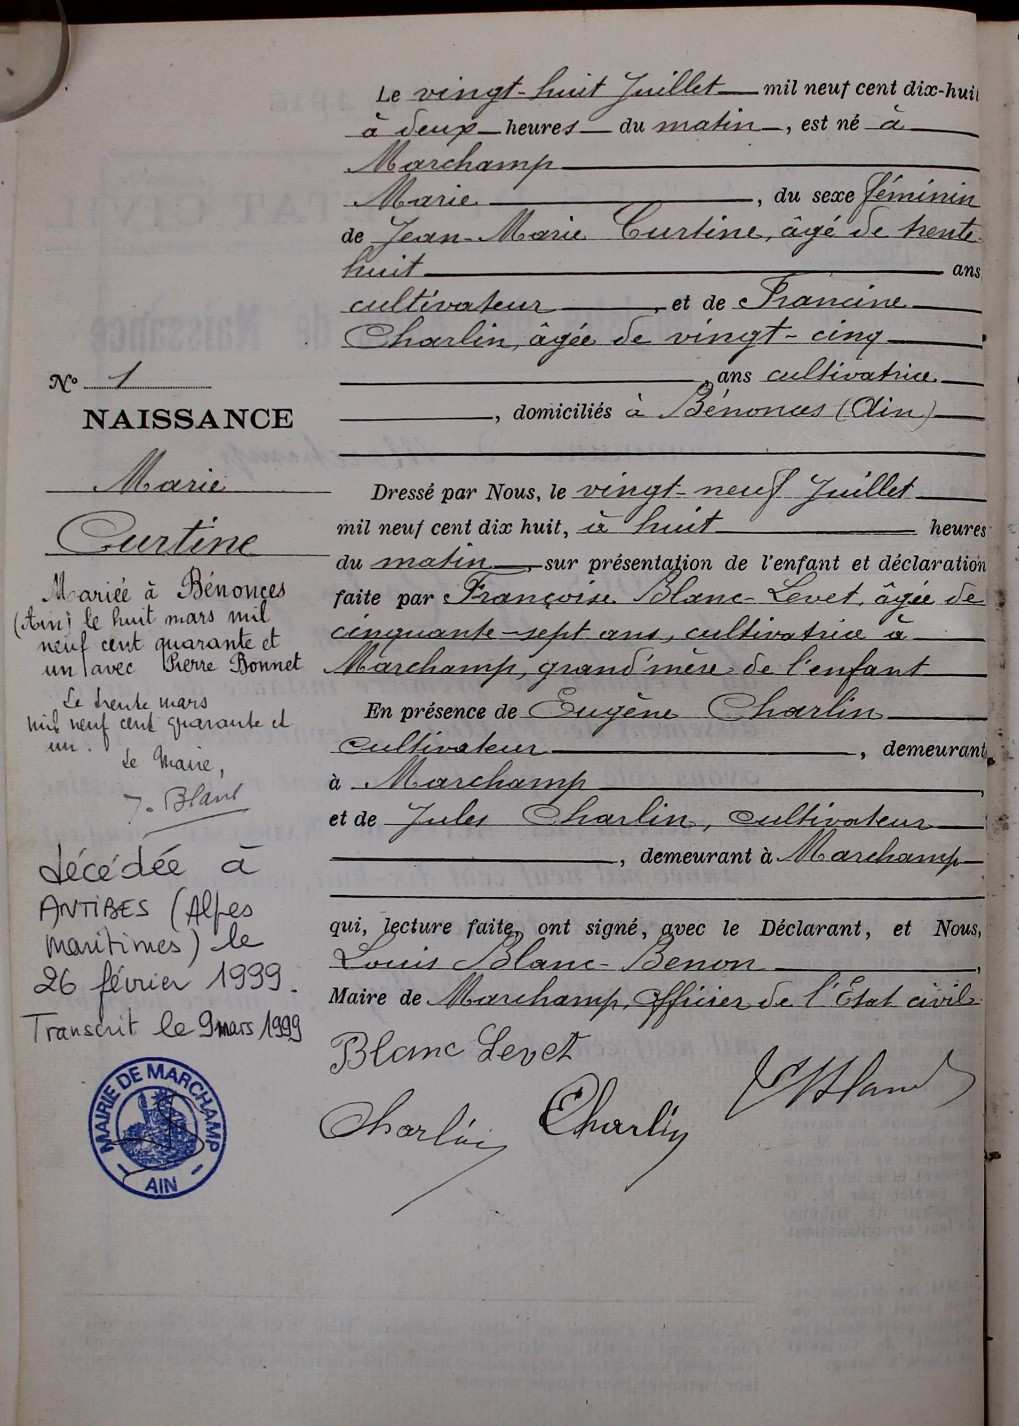 Le vingt-huit Juillet mil neuf cent dix-huit
à deux heures du matin, est né à
Marchamp
Marie, du sexe féminin
de Jean-Marie Curtine, âgé de trente
huit ans
cultivateur, et de Francine
Charlin, âgée de vingt-cinq
ans cultivatrice
, domiciliés à Bénonces (Ain)
Dressé par Nous, le vingt-neuf Juillet
mil neuf cent dix huit, à huit heures
du matin, sur présentation de l'enfant et déclaration
faite par Françoise Blanc-Levet, âgée de
cinquante-sept ans, cultivatrice à
Marchamp, grand'mère de l'enfant
En présence de Eugène Charlin
cultivateur, demeurant
à Marchamp,
et de Jules Charlin, cultivateur
, demeurant à Marchamp
qui, lecture faite, ont signé, avec le Déclarant, et Nous,
Louis Blanc-Benon,
Maire de Marchamp, Officier de l'Etat civil.
Blanc Levet
Charlin Charlin
No 1
NAISSANCE
Marie
Curtine
Mariée à Bénonces
(Ain) le huit mars mil
neuf cent quarante et
un avec Pierre Bonnet
Le trente mars
mil neuf cent quarante et
un.
Le Maire,
J. Blanc
décédée à
ANTIBES (Alpes
maritimes) le
26 février 1999.
Transcrit le 9 mars 1999
MAIRIE DE MARCHAMP
AIN